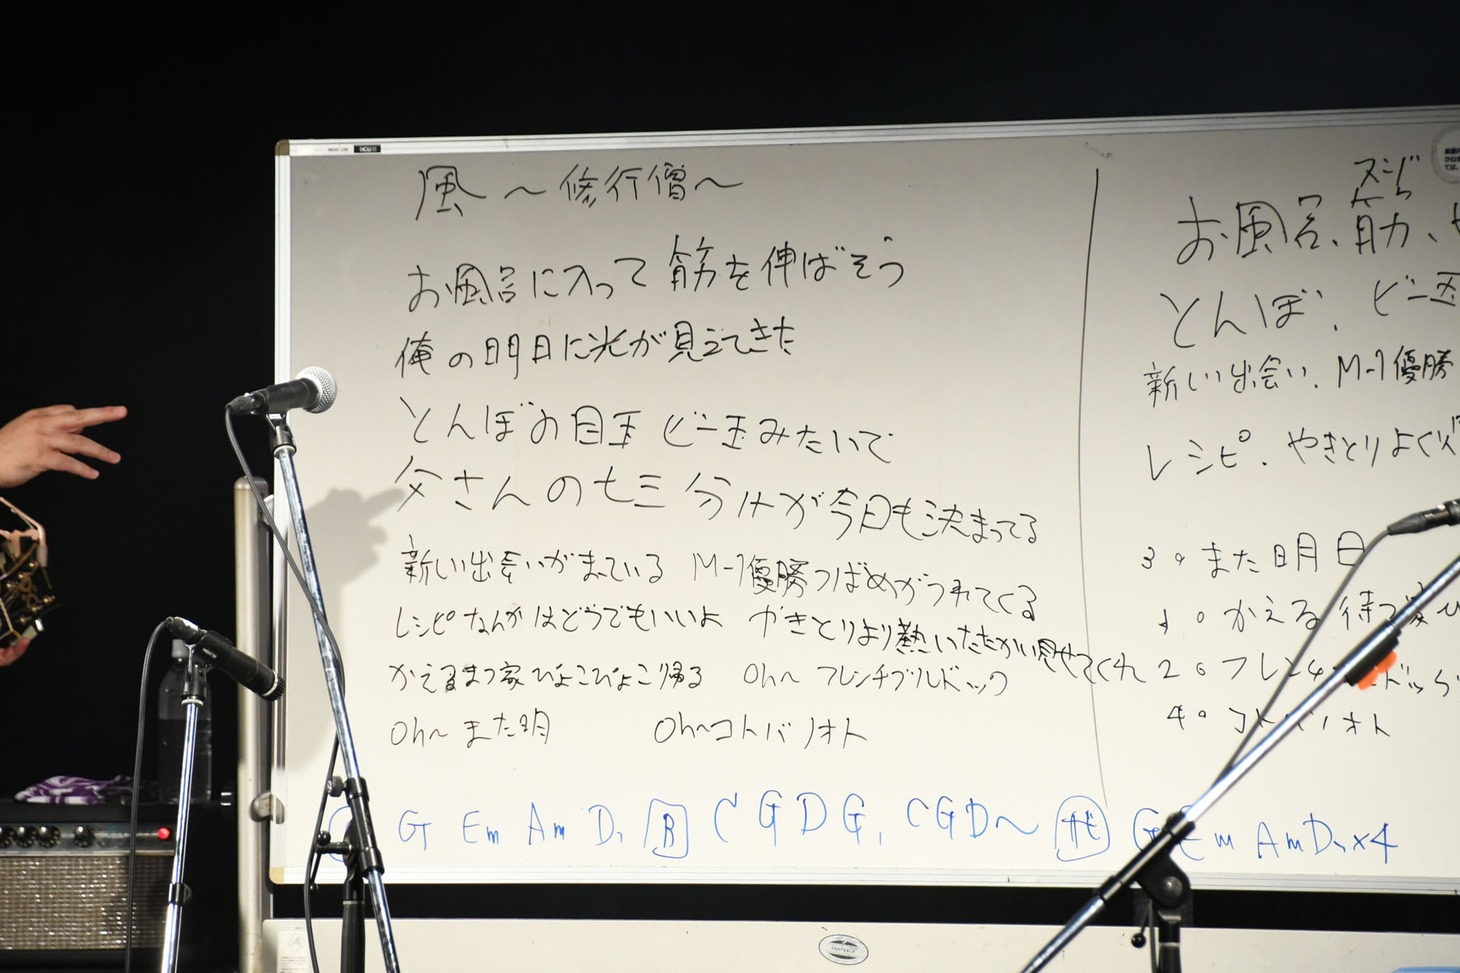 風 ～修行僧～
お風呂に入って 筋を伸ばそう
俺の明日に光が見えてきた
とんぼの目玉 ビー玉みたいで
父さんの七三分けが今日も決まってる
新しい出会いがまっている M-1優勝つばめがつれてくる
レシピなんかはどうでもいいよ やきとりより熱いたたかい見せてくれ
かえるまつ家ぴょこぴょこ帰る Oh～ フレンチブルドック
Oh～ また明 Oh～コトバノオト
G Em Am D, B C G D G, C G D～
スジ
お風呂、筋、
とんぼ、ビー玉
新しい出会い、M-1優勝
レシピ、やきとりよく
3。また明日
1。かえる待つ家
2。フレンチ ドック
4。コトバノオト
サビ G Em Am D, ×4